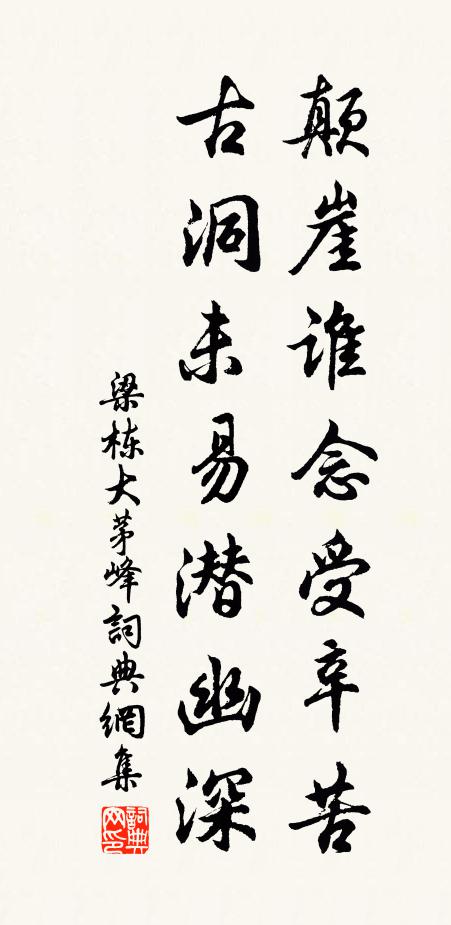 颠崖谁念受辛苦
古洞未易潜幽深
梁栋大茅峰詞典網集
詞典網印